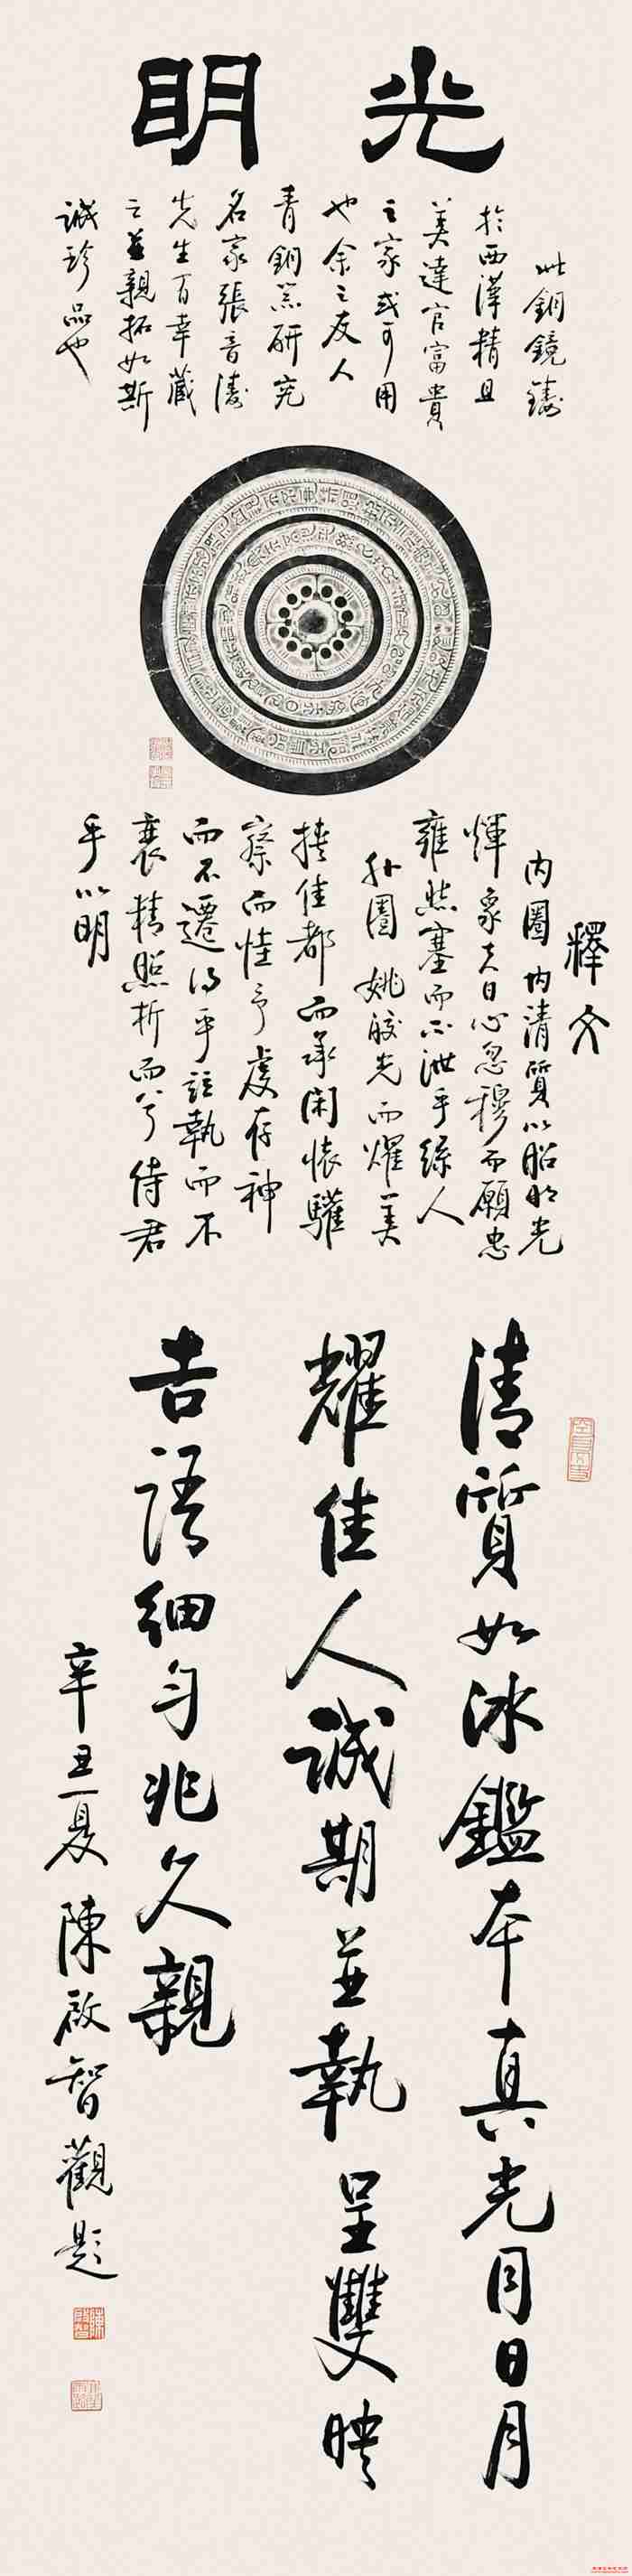 光明
此銅鏡鑄
於西漢精且
美達官富貴
之家或可用
也余之友人
青銅器研究
名家張音濤
先生百幸藏
之並親拓如斯
誠珍品也
釋文
內圈 內清質以昭明光
輝象夫日心忽穆而願忠
雍然塞而不泄乎絲人
外圈 姚皎光而燿美
挾佳都而承閑懷驩
察而恚予虔存神
而不遷得乎竝執而不
衰精照折而兮侍君
乎以明
清質如冰鑑本真光同日月
耀佳人誠期並執呈雙映
吉語細勻兆久親
辛丑夏 陳啟智觀題
陳啟智